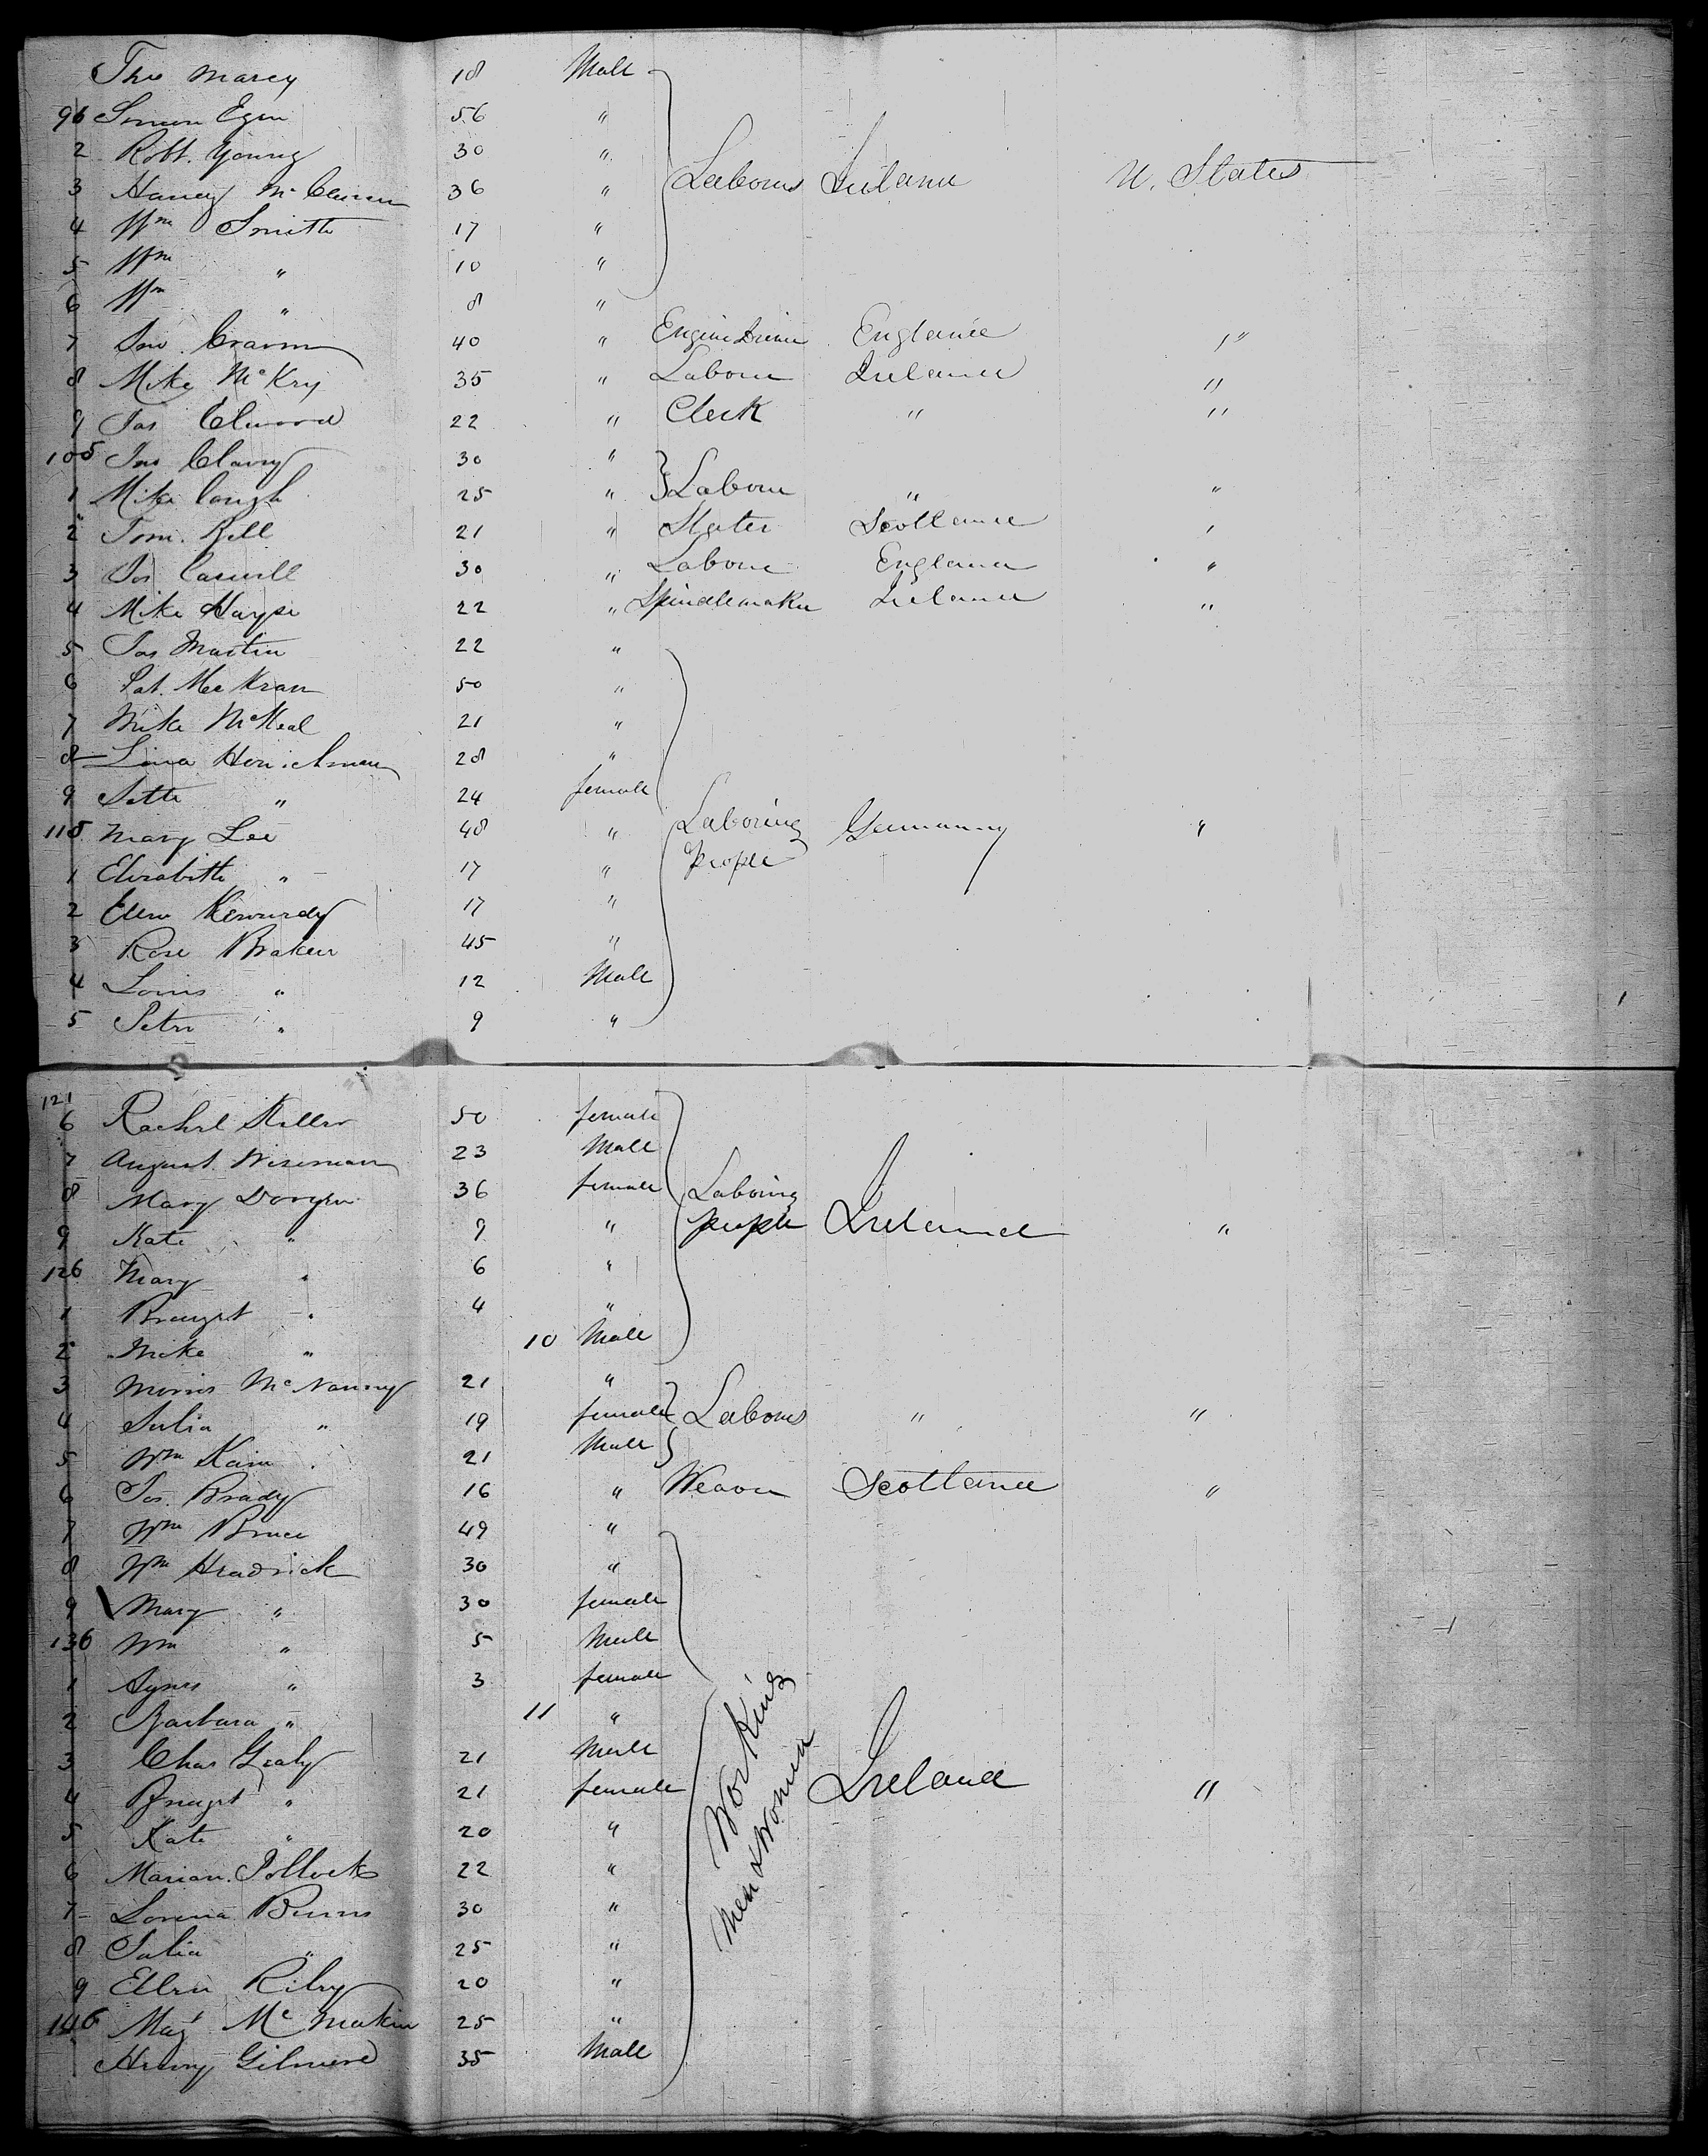 Tho Marcy 18 Male
96 Simon Egan 56 "
2 Robt. Young 30 "
3 Harvey 36 " Laborers Ireland U. States
4 Wm Smith 17 "
5 Wm " 10 "
6 Wm " 8 "
7 Jno. 40 " Engine Driver England "
8 Mike McKry 35 " Laborer Ireland "
9 Jas Elwood 22 " Clerk " "
105 Jno Clancy 30 "
1 Mike Cough 25 " Laborer " "
2 Tom. Bell 21 " Slater Scotland "
3 Jos Caswell 30 " Laborer England "
4 Mike Harpe 22 " Spindlemaker Ireland "
5 Jas Martin 22 "
6 Pat. 50 "
7 Mike McNeal 21 "
8 28 "
9 " 24 female
115 Mary Lee 48 " Laboring Germany "
people
1 Elizabeth " 17 "
2 Ellen Kennedy 17 "
3 Rose Braken 45 "
4 Louis " 12 Male
5 Peter " 9 "
121
6 Rachel 50 female
7 August Wiseman 23 Male
8 Mary 36 female Laboring
9 Kate " 9 " people Ireland "
126 Mary " 6 "
1 " 4 "
2 Mike " 10 Male
3 Morris McNanny 21 "
4 Julia " 19 female Laborers " "
5 Wm Kain 21 Male
6 Jos. Brady 16 " Weaver Scotland "
7 Wm Bruce 49 "
8 Wm Headrick 30 "
9 Mary " 30 female
136 Wm " 5 Male
1 Agnes " 3 female
2 Barbara " 11 "
3 Chas Gealy 21 Male
4 " 21 female Working Men & Women Ireland "
5 Kate " 20 "
6 Marian. Pollock 22 "
7 Lorena Burns 30 "
8 Julia " 25 "
9 Ellen Riley 20 "
146 Magt 25 "
Henry Gilmore 35 Male